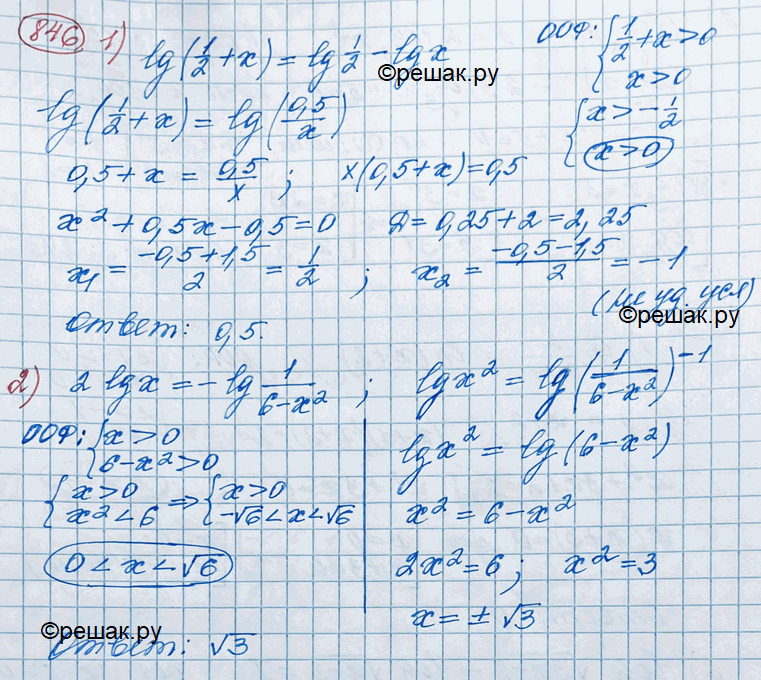 846 1) lg(1/2+x) = lg 1/2 - lg x
ООФ: { 1/2+x>0
x>0
©решак.ру
lg(1/2+x) = lg(0,5/x)
{ x>-1/2
x>0
0,5+x = 0,5/x ; x(0,5+x)=0,5
x²+0,5x-0,5=0 Д=0,25+2=2,25
x₁ = (-0,5+1,5)/2 = 1/2 ; x₂ = (-0,5-1,5)/2 = -1
(не уд. усл)
©решак.ру
Ответ: 0,5.
2) 2 lg x = -lg 1/(6-x²) ; lg x² = lg(1/(6-x²))⁻¹
ООФ: { x>0
6-x²>0
{ x>0 ⇒ { x>0
x²<6 -√6<x<√6
0<x<√6
lg x² = lg(6-x²)
x² = 6-x²
2x²=6 ; x²=3
x = ±√3
©решак.ру
Ответ: √3